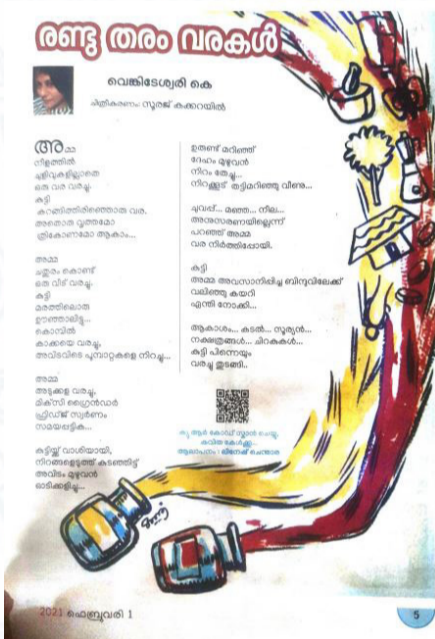 രണ്ടു തരം വരകൾ
വെങ്കിടേശ്വരി കെ
ചിത്രീകരണം: സൂരജ് കക്കറയിൽ
അമ്മ
നീളത്തിൽ
ചുളിവുകളില്ലാതെ
ഒരു വര വരച്ചു.
കുട്ടി
കറങ്ങിത്തിരിഞ്ഞൊരു വര.
അതൊരു വൃത്തമോ
ത്രികോണമോ ആകാം...
അമ്മ
ചതുരം കൊണ്ട്
ഒരു വീട് വരച്ചു.
കുട്ടി
മരത്തിലൊരു
ഊഞ്ഞാലിട്ടു...
കൊമ്പിൽ
കാക്കയെ വരച്ചു,
അവിടവിടെ പൂമ്പാറ്റകളെ നിറച്ചു...
അമ്മ
അടുക്കള വരച്ചു,
മിക്സി ഗ്രൈൻഡർ
ഫ്രിഡ്ജ് സ്വർണം
സമയപ്പട്ടിക...
കുട്ടിയ്ക്ക് വാശിയായി,
നിറങ്ങളെടുത്ത് കുടഞ്ഞിട്ട്
അവിടം മുഴുവൻ
ഓടിക്കളിച്ചു...
ഉരുണ്ട് മറിഞ്ഞ്
ദേഹം മുഴുവൻ
നിറം തേച്ചു...
നിറക്കൂട് തട്ടിമറിഞ്ഞു വീണു...
ചുവപ്പ്... മഞ്ഞ... നീല...
അനുസരണയില്ലെന്ന്
പറഞ്ഞ് അമ്മ
വര നിർത്തിപ്പോയി.
കുട്ടി
അമ്മ അവസാനിപ്പിച്ച ബിന്ദുവിലേക്ക്
വലിഞ്ഞു കയറി
എന്തി നോക്കി...
ആകാശം... കടൽ... സൂര്യൻ...
നക്ഷത്രങ്ങൾ... ചിറകുകൾ...
കുട്ടി പിന്നെയും
വരച്ചു തുടങ്ങി..
ക്യു ആർ കോഡ് സ്കാൻ ചെയ്തു
കവിത കേൾക്കൂ...
ആലാപനം :
2021 ഫെബ്രുവരി 1
5